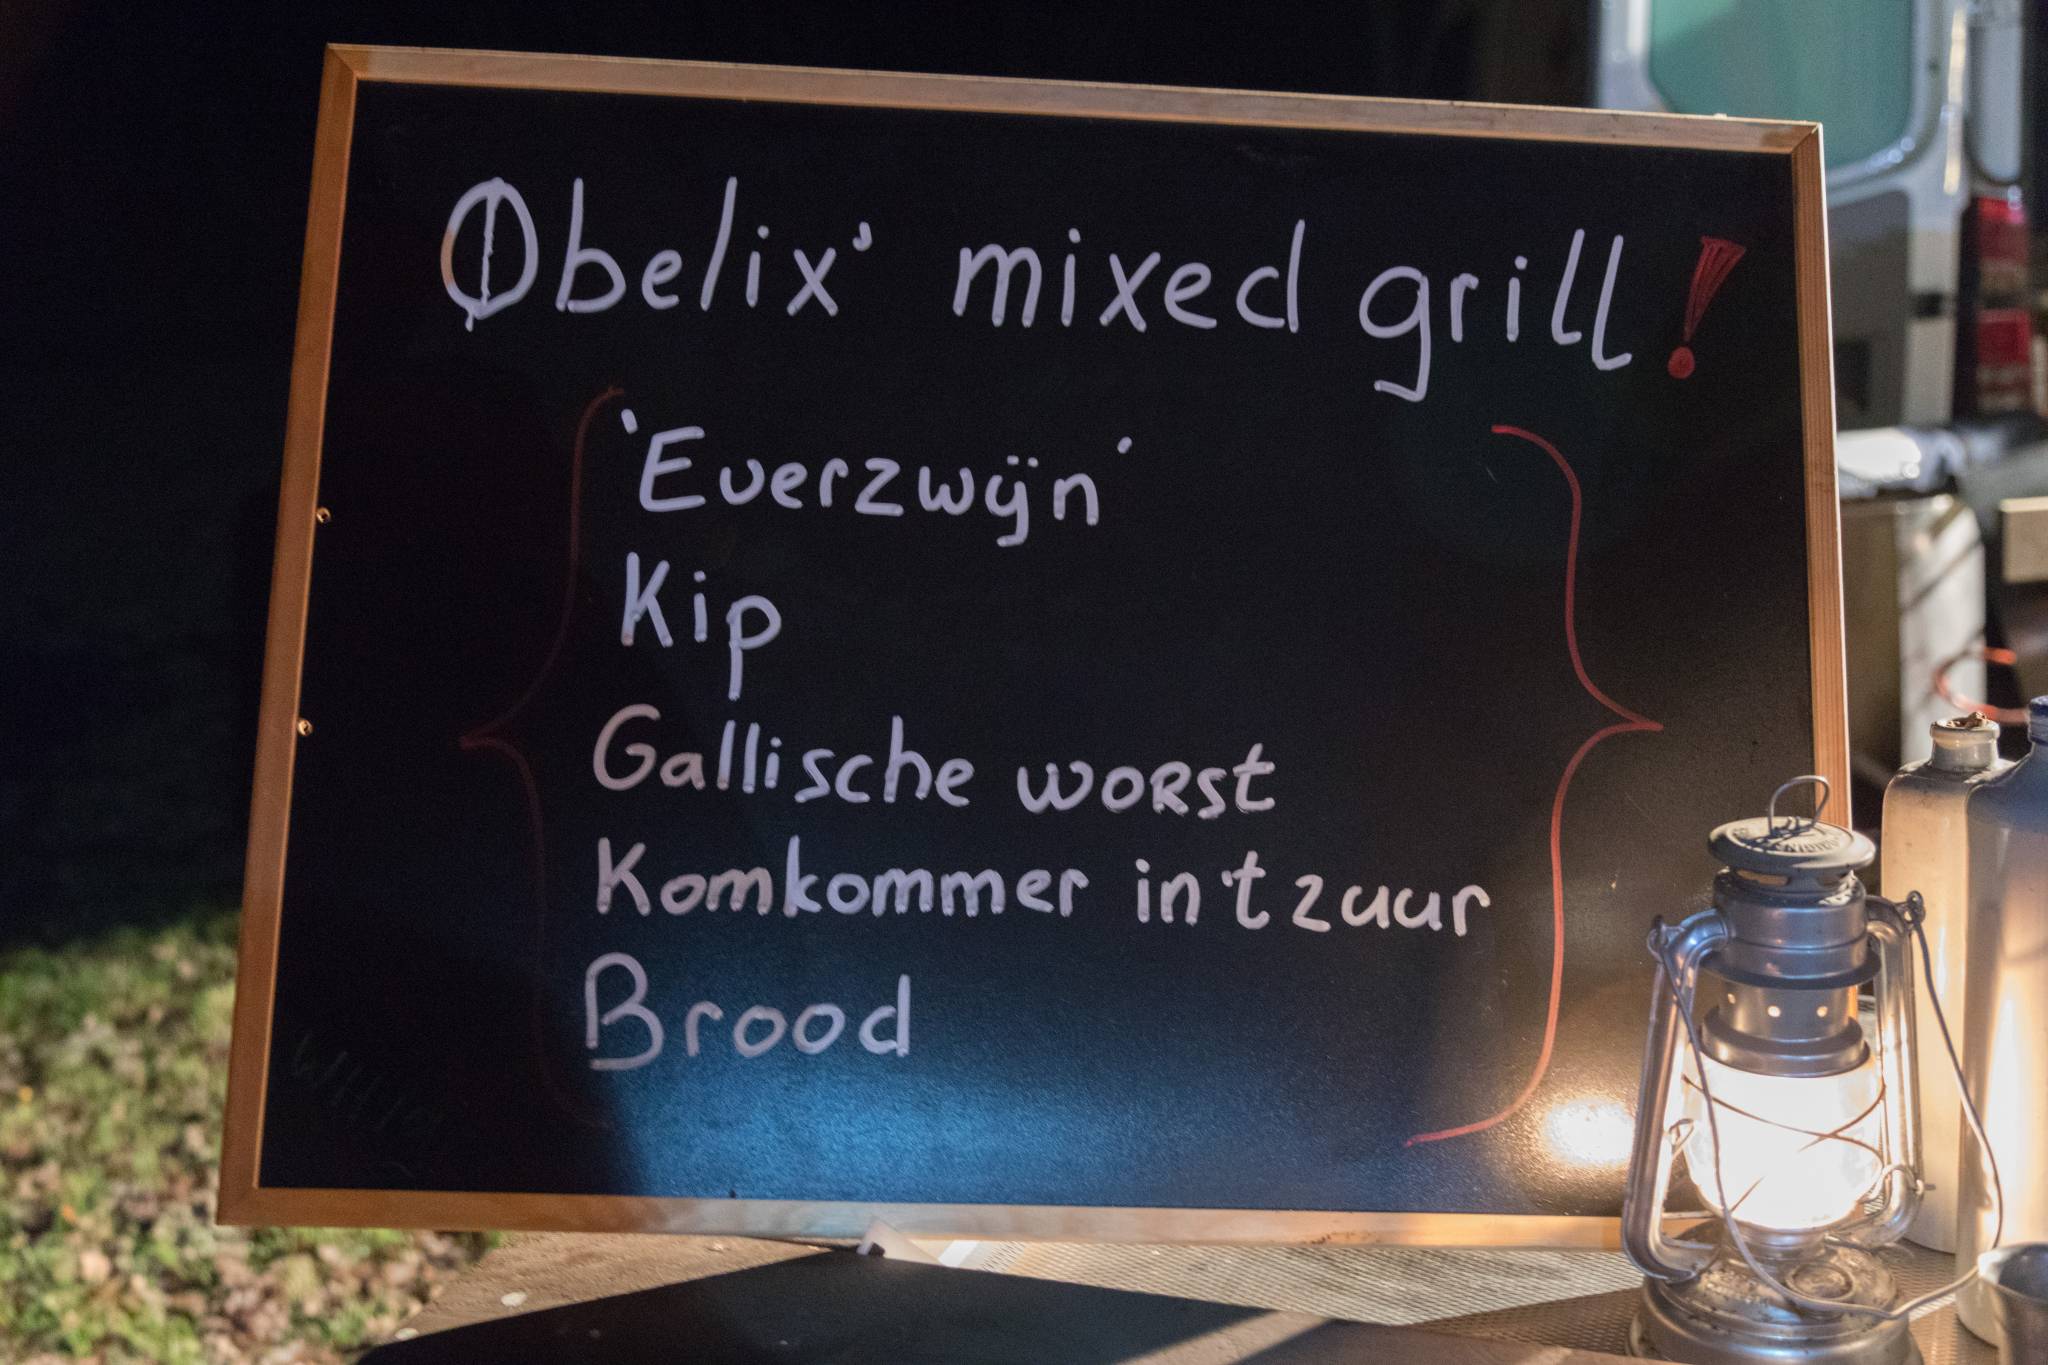 Obelix' mixed grill!
'Everzwijn'
Kip
Gallische worst
Komkommer in 't zuur
Brood